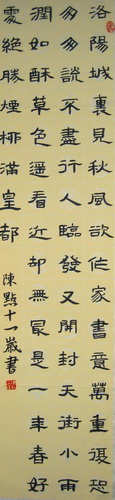 洛陽城裏見秋風欲作家書意萬重復恐
匆匆說不盡行人臨發又開封天街小雨
潤如酥草色遙看近却無冣是一年春好
處絕勝煙柳滿皇都
陳點十一歲書